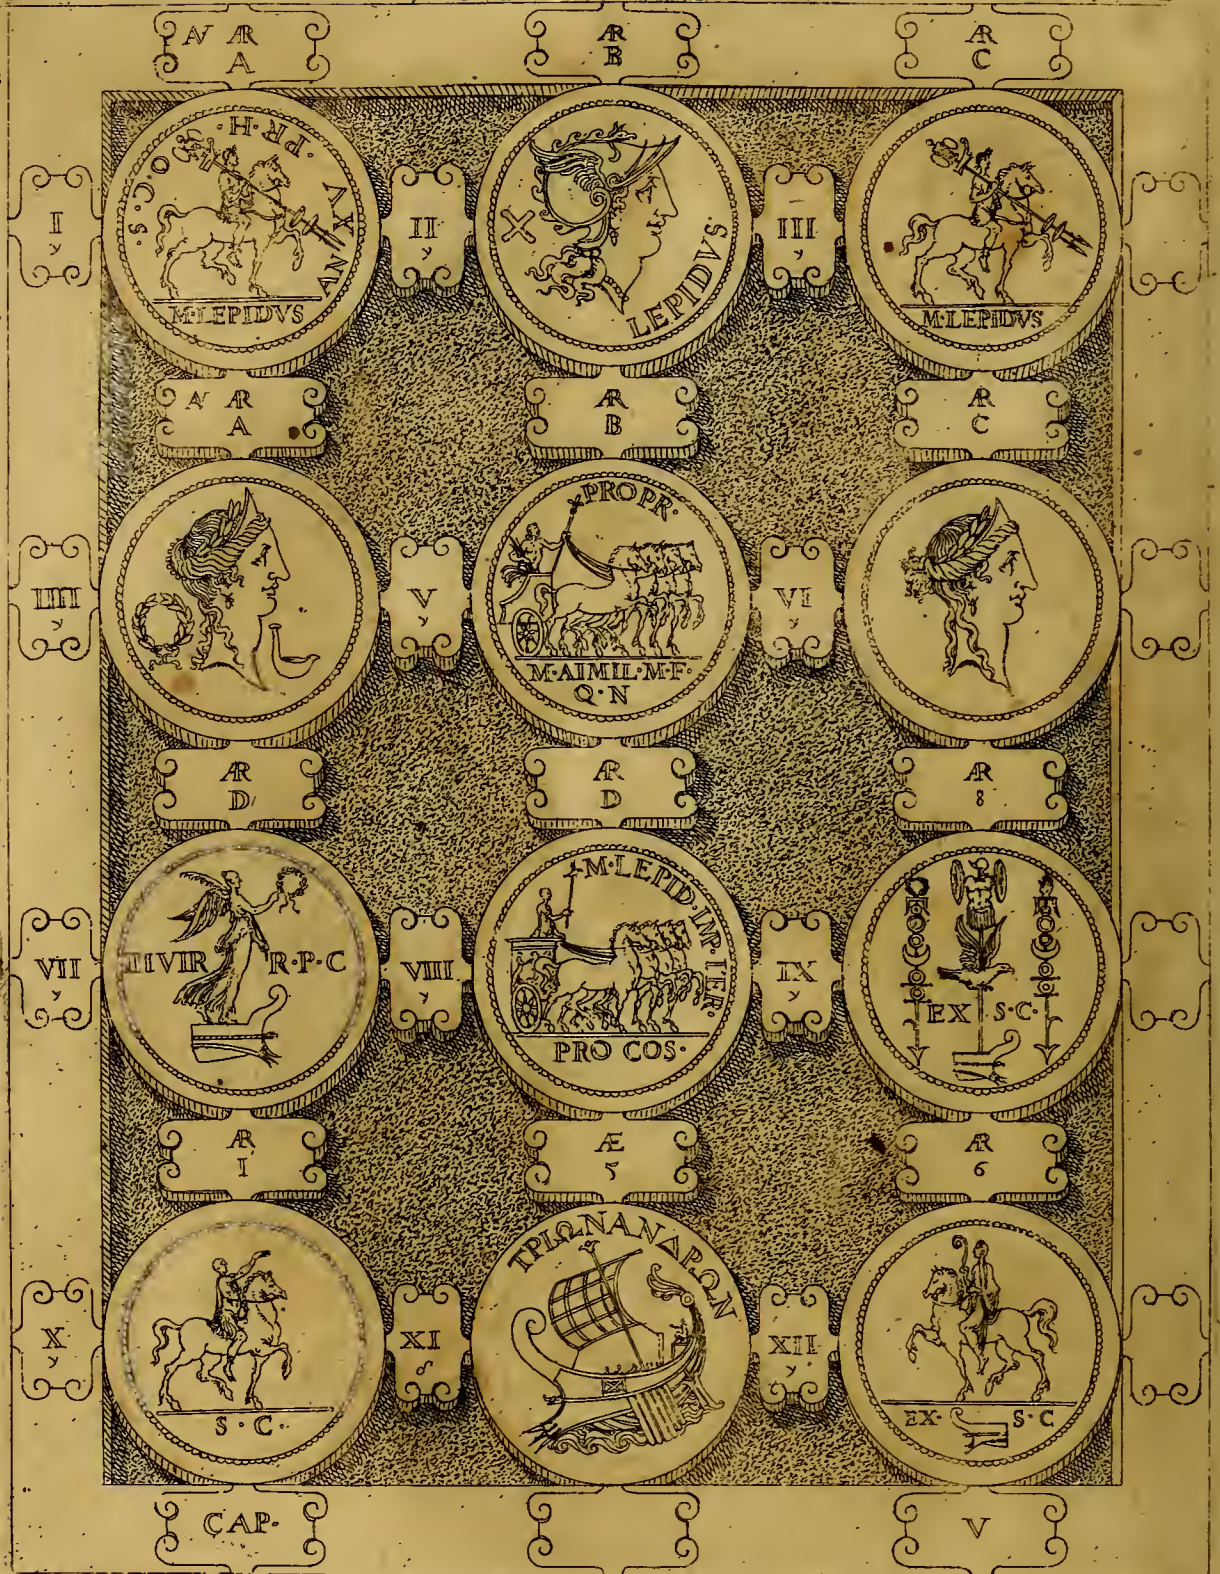 AV AR
A
AR
B
AR
C
I
y
·H·PR·
AN XV
O·C·S·
M·LEPIDVS
II
y
X
LEPIDVS·
III
y
M·LEPIDVS
AV AR
A
AR
B
AR
C
IIII
y
V
y
PROPR·
M·AIMIL·M·F·
Q·N
VI
y
AR
D
AR
D
AR
8
VII
y
IIIVIR R·P·C
VIII
y
M·LEPID·IMP·TER·
PRO COS·
IX
y
EX S·C·
AR
I
Æ
5
AR
6
X
y
S·C·
XI
ΤΡΙΩΝΑΝΔΡΩΝ
XII
y
EX· S·C
CAP·
V